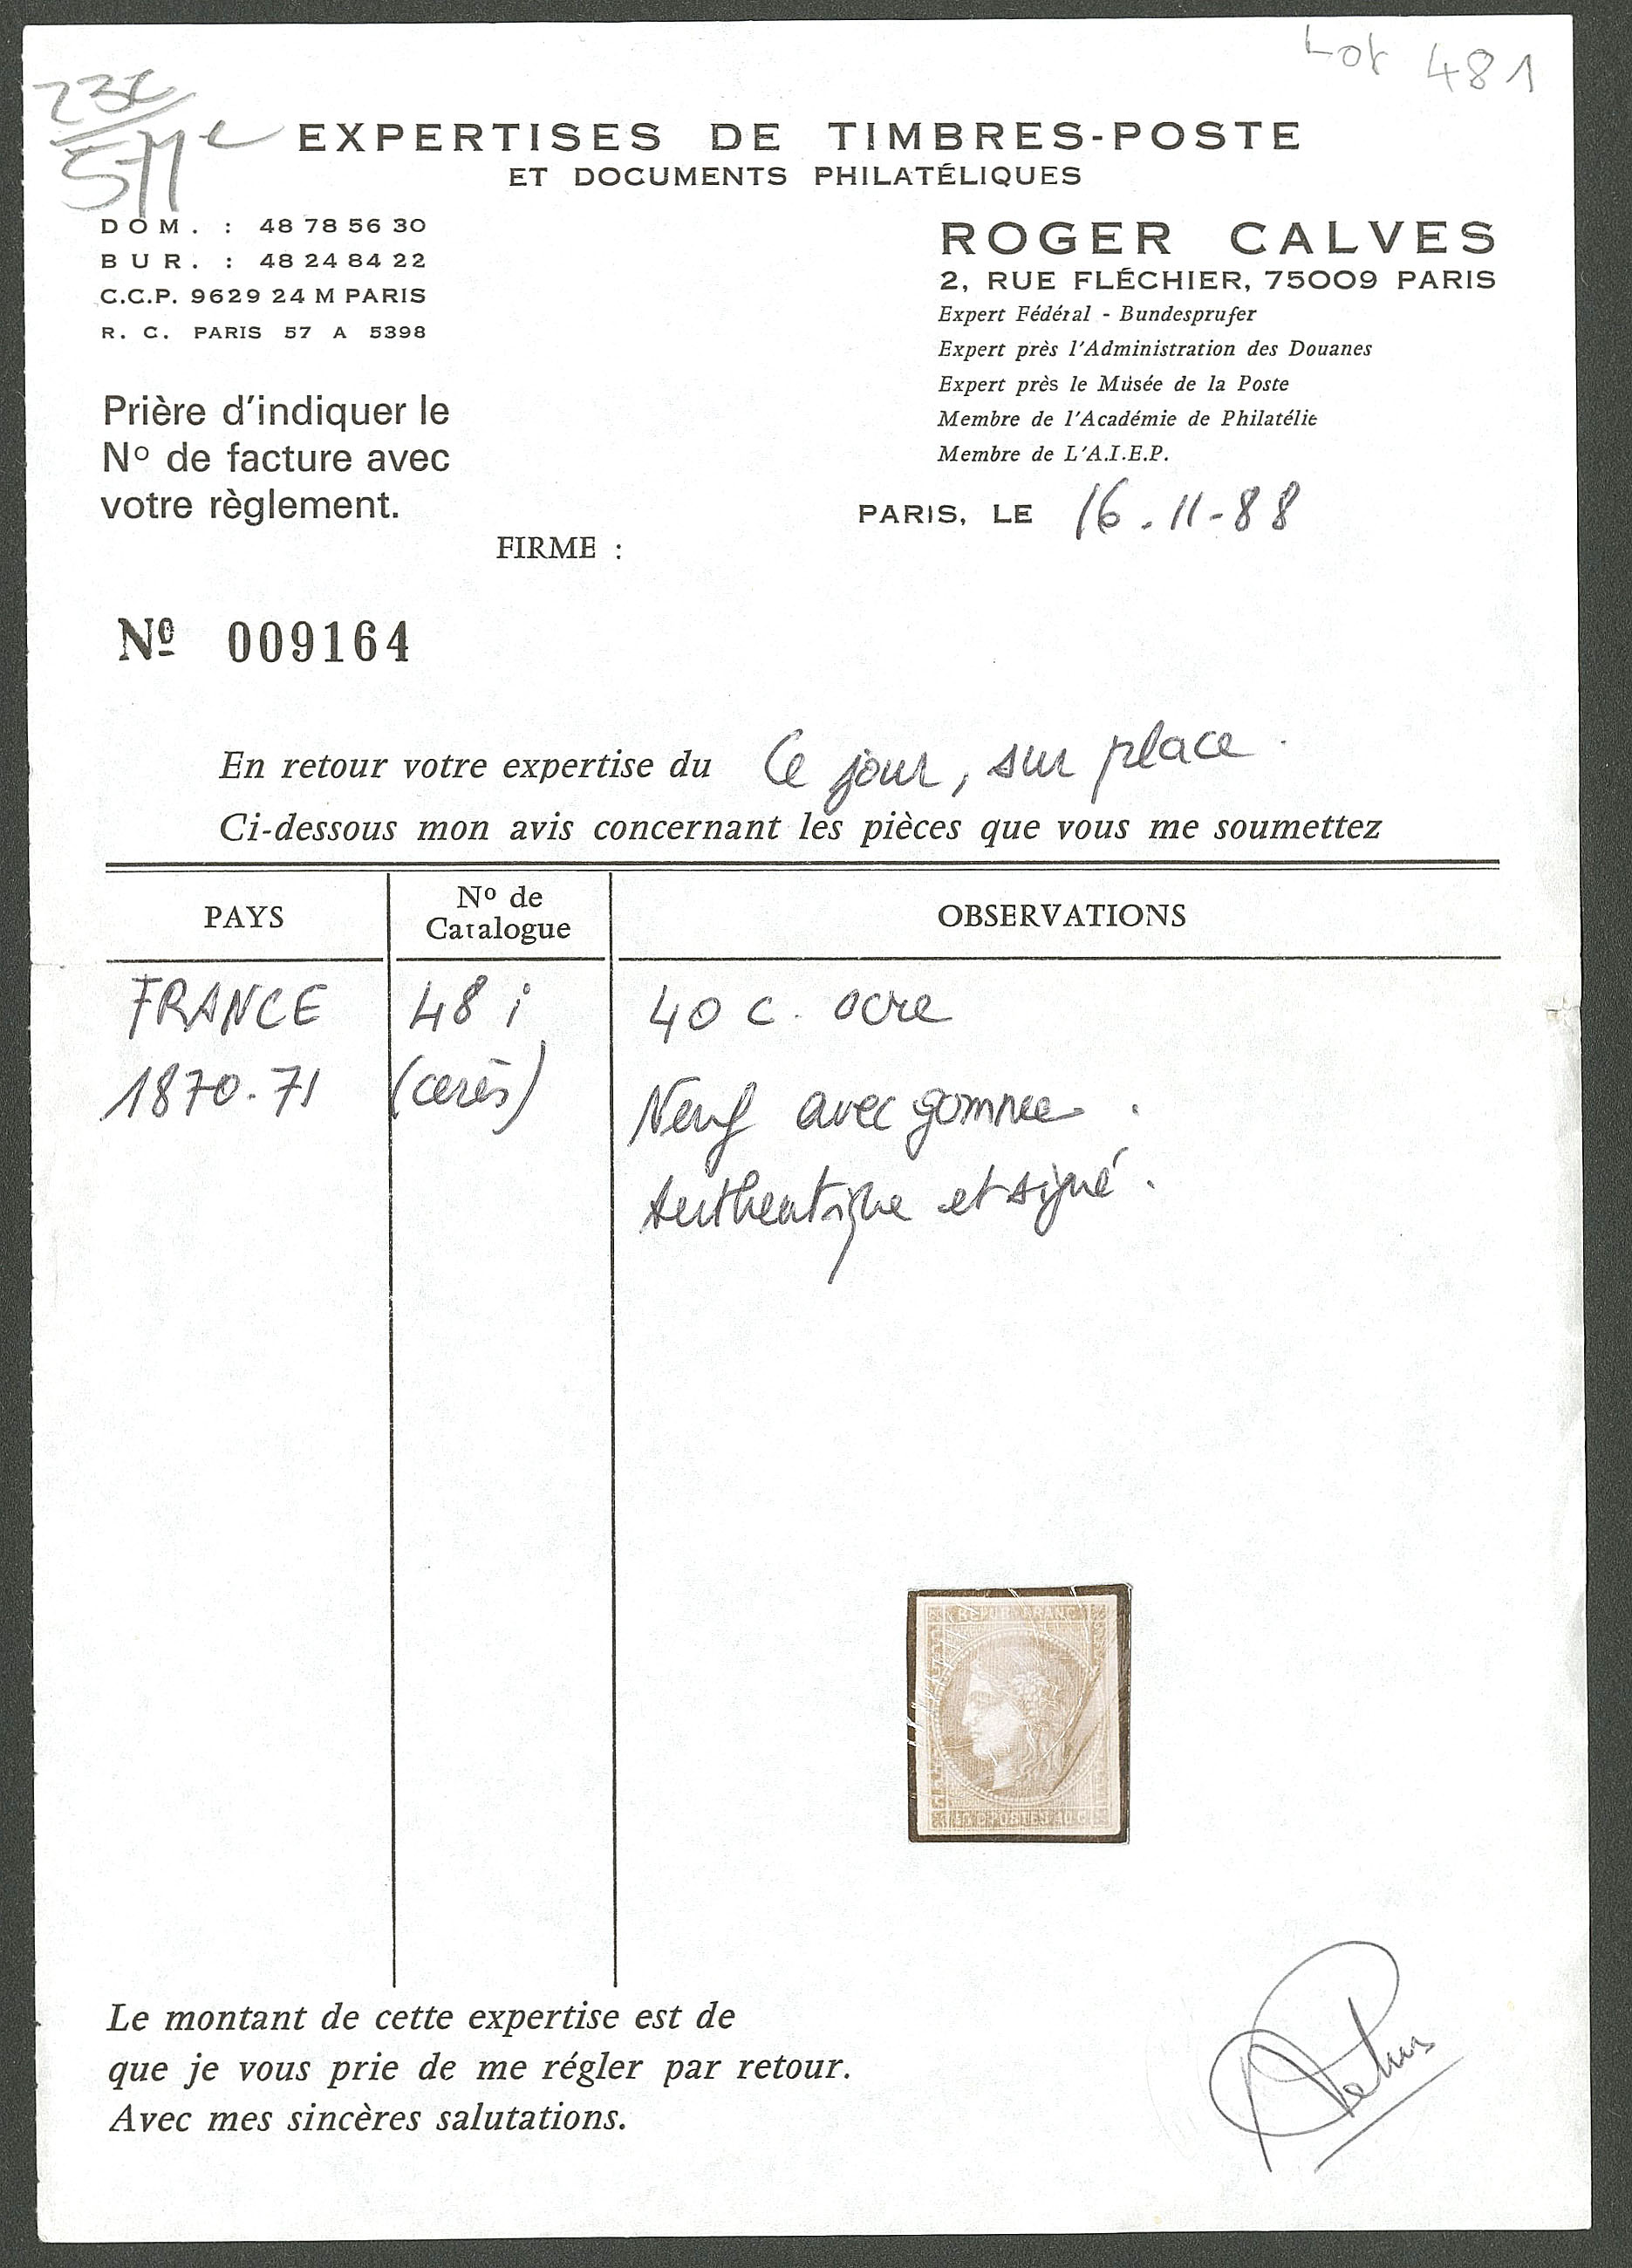 Lot 481
EXPERTISES DE TIMBRES-POSTE
ET DOCUMENTS PHILATÉLIQUES
DOM. : 48 78 56 30
BUR. : 48 24 84 22
C.C.P. 9629 24 M PARIS
R. C. PARIS 57 A 5398
ROGER CALVES
2, RUE FLÉCHIER, 75009 PARIS
Expert Fédéral - Bundesprufer
Expert près l'Administration des Douanes
Expert près le Musée de la Poste
Membre de l'Académie de Philatélie
Membre de L'A.I.E.P.
Prière d'indiquer le
Nº de facture avec
votre règlement.
PARIS, LE 16-11-88
FIRME :
Nº 009164
En retour votre expertise du Ce jour, sur place.
Ci-dessous mon avis concernant les pièces que vous me soumettez
PAYS
Nº de
Catalogue
OBSERVATIONS
FRANCE 48 i 40 c. ocre
1870-71 (cérès) Neuf avec gomme.
Authentique et signé.
REPUB FRANC
POSTES 40 C
Le montant de cette expertise est de
que je vous prie de me régler par retour.
Avec mes sincères salutations.